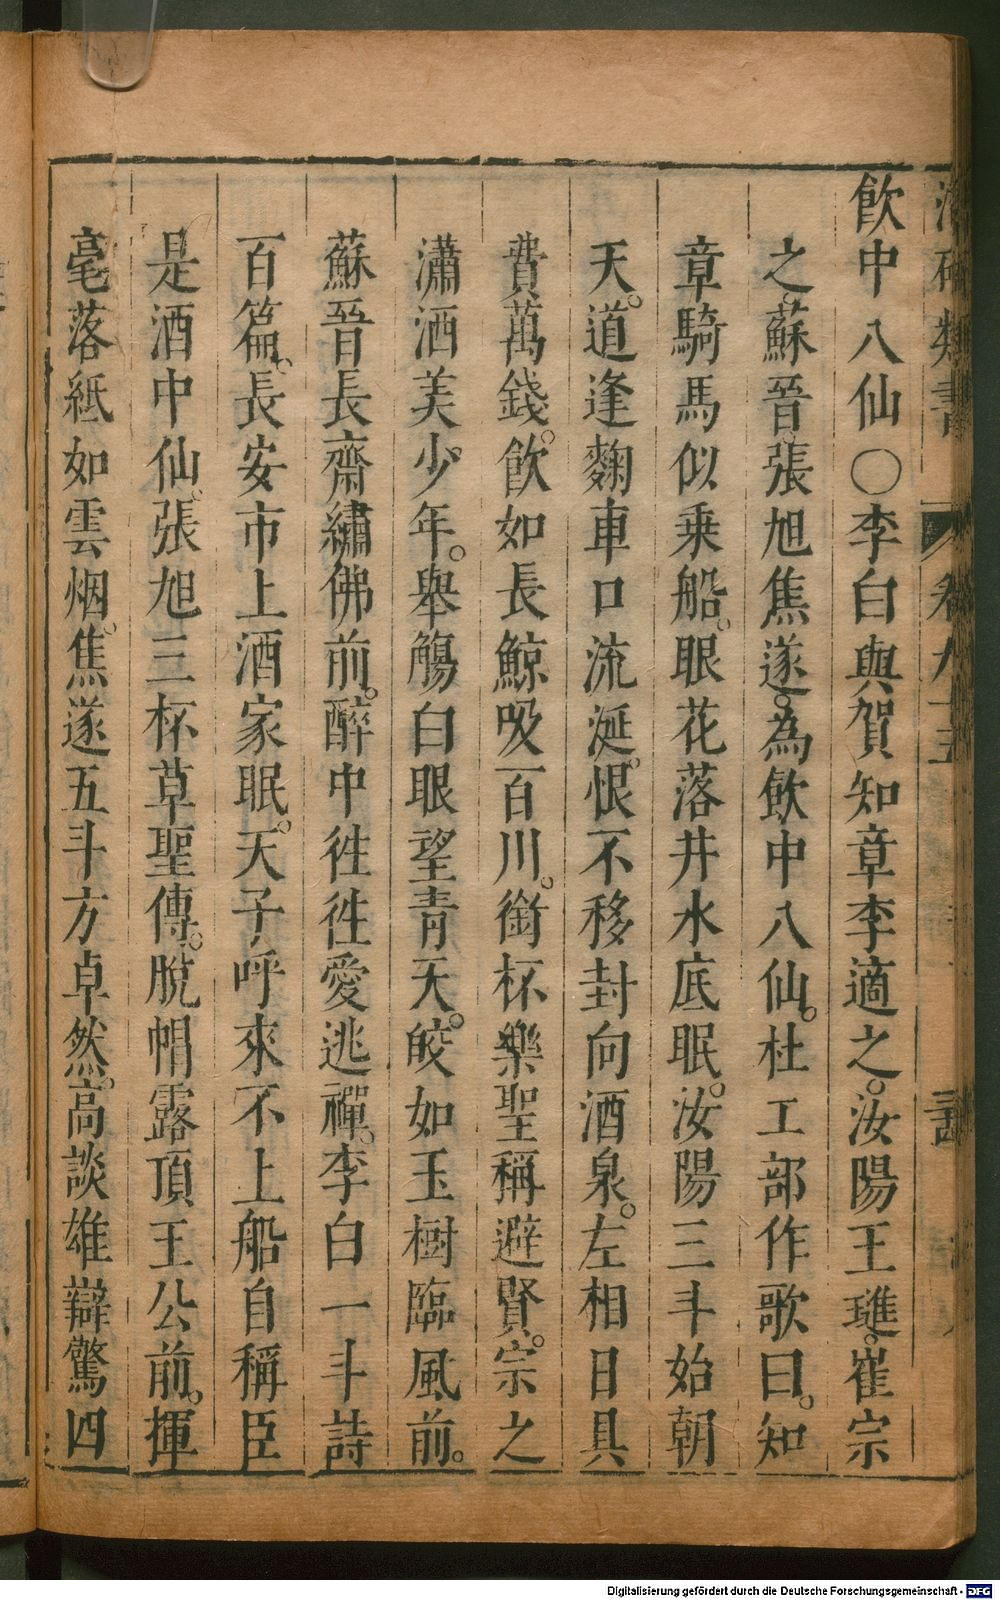 飲中八仙○李白與賀知章李適之。汝陽王璡。崔宗
之。蘇晉。張旭焦遂。為飲中八仙。杜工部作歌曰。知
章騎馬似乗船。眼花落井水底眠。汝陽三斗始朝
天。道逢麴車口流涎。恨不移封向酒泉。左相日具
費萬錢。飲如長鯨吸百川。銜杯樂聖稱避賢。宗之
瀟洒美少年。舉觴白眼望青天。皎如玉樹臨風前。
蘇晉長齋繡佛前。醉中徃徃愛逃禪。李白一斗詩
百篇。長安市上酒家眠。天子呼來不上船自稱臣
是酒中仙。張旭三杯草聖傳。脫帽露頂王公前。揮
毫落紙如雲烟。焦遂五斗方卓然。高談雄辯驚四
類書
卷九十五
Digitalisierung gefördert durch die Deutsche Forschungsgemeinschaft - DFG